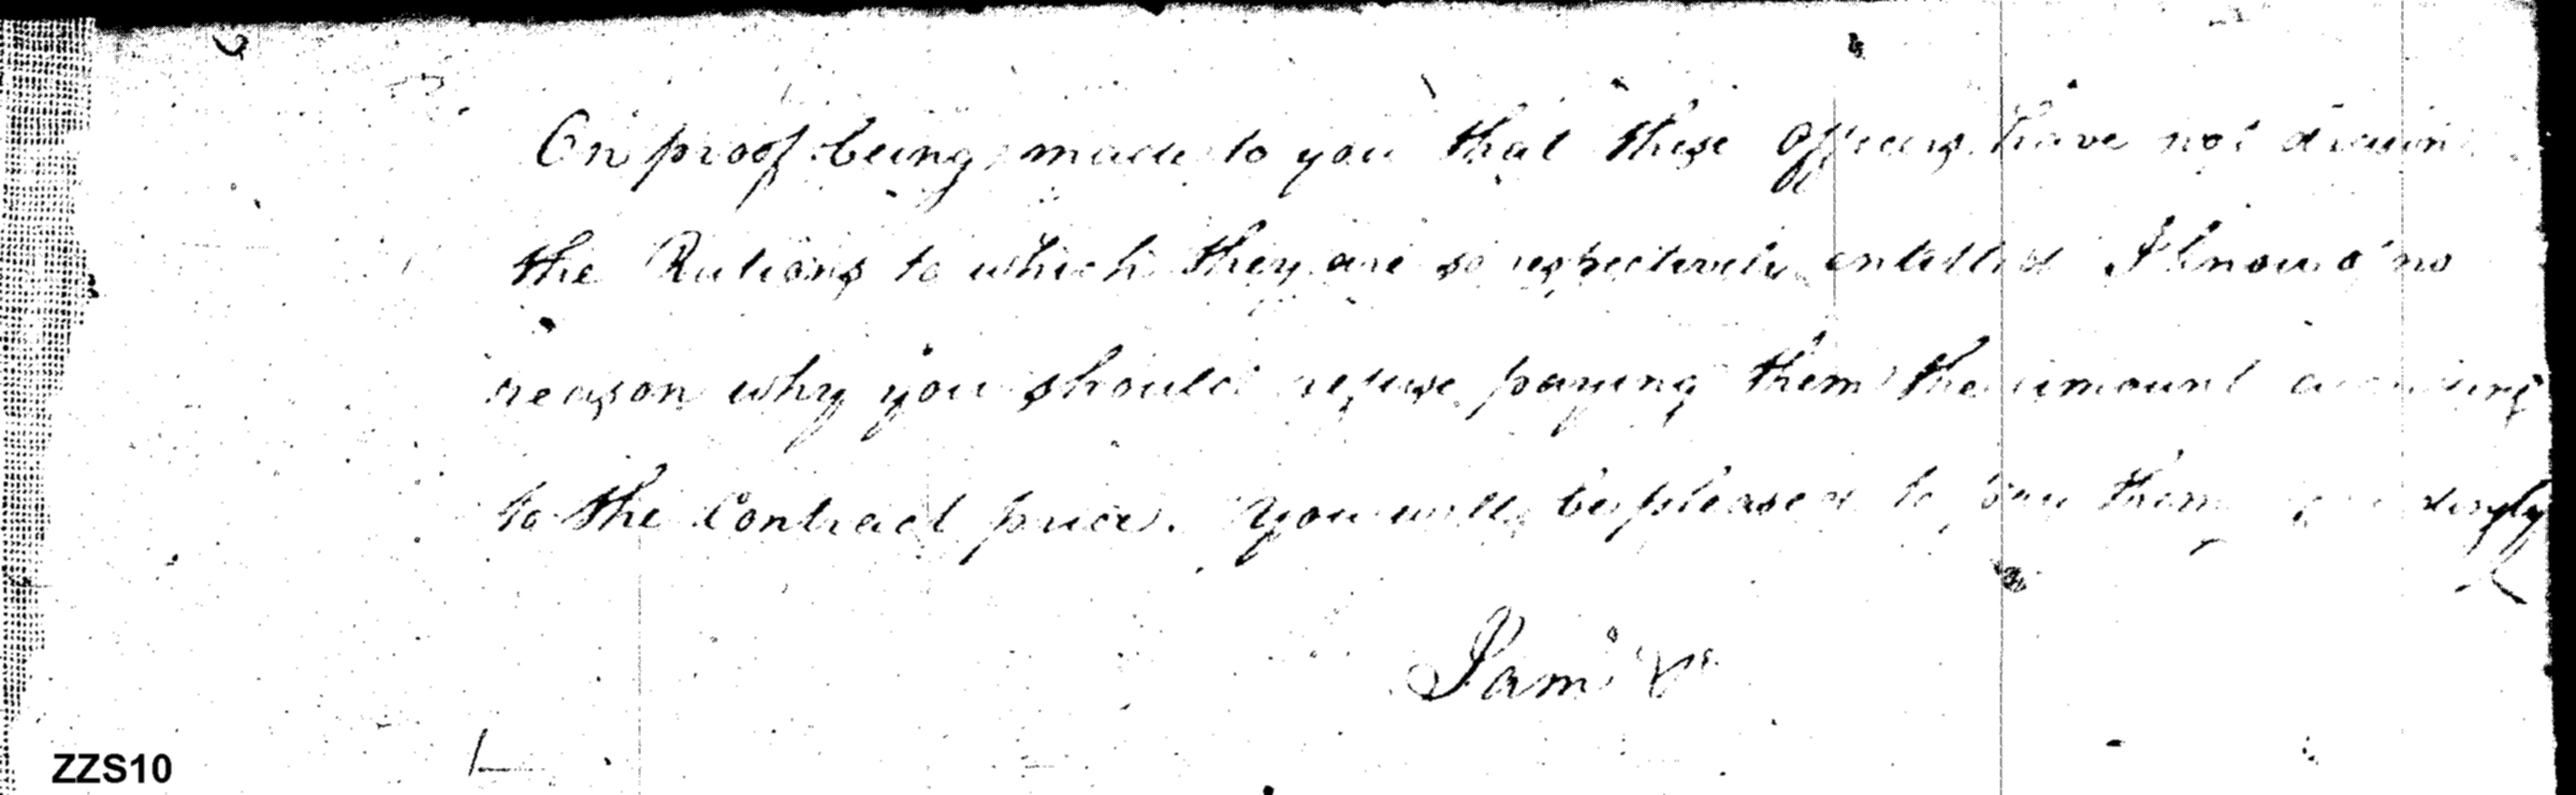 On proof being made to you that these officers have not drawn
the Rations to which they are so respectively entitled I know o no
reason why you should refuse paying them the amount according
to the Contract price. You will be pleased to pay them accordingly
I am &c
ZZS10